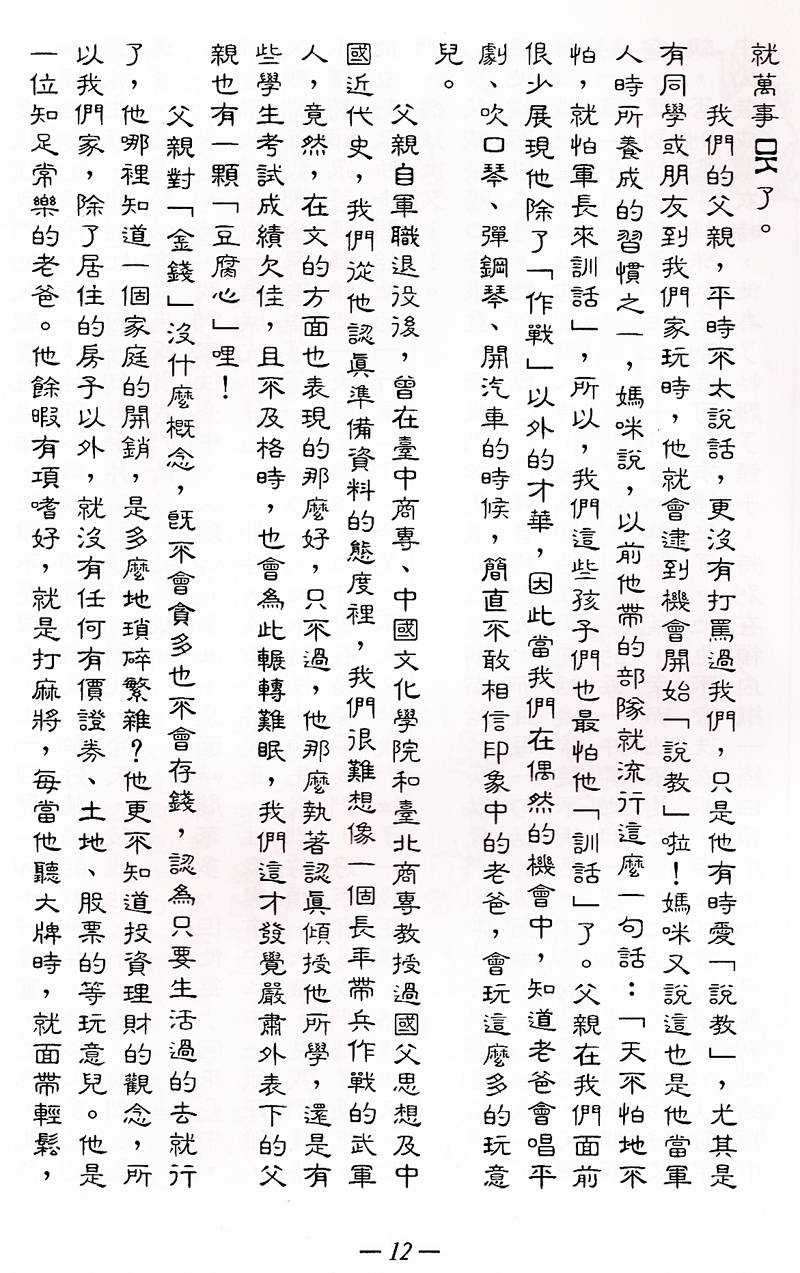 就萬事OK了。
我們的父親，平時不太說話，更沒有打罵過我們，只是他有時愛「說教」，尤其是
有同學或朋友到我們家玩時，他就會逮到機會開始「說教」啦！媽咪又說這也是他當軍
人時所養成的習慣之一，媽咪說，以前他帶的部隊就流行這麼一句話：「天不怕地不
怕，就怕軍長來訓話」，所以，我們這些孩子們也最怕他「訓話」了。父親在我們面前
很少展現他除了「作戰」以外的才華，因此當我們在偶然的機會中，知道老爸會唱平
劇、吹口琴、彈鋼琴、開汽車的時候，簡直不敢相信印象中的老爸，會玩這麼多的玩意
兒。
父親自軍職退役後，曾在臺中商專、中國文化學院和臺北商專教授過國父思想及中
國近代史，我們從他認真準備資料的態度裡，我們很難想像一個長年帶兵作戰的武軍
人，竟然，在文的方面也表現的那麼好，只不過，他那麼執著認真傾授他所學，還是有
些學生考試成績欠佳，且不及格時，也會為此輾轉難眠，我們這才發覺嚴肅外表下的父
親也有一顆「豆腐心」哩！
父親對「金錢」沒什麼概念，既不會貪多也不會存錢，認為只要生活過的去就行
了，他哪裡知道一個家庭的開銷，是多麼地瑣碎繁雜？他更不知道投資理財的觀念，所
以我們家，除了居住的房子以外，就沒有任何有價證券、土地、股票的等玩意兒。他是
一位知足常樂的老爸。他餘暇有項嗜好，就是打麻將，每當他聽大牌時，就面帶輕鬆，
— 12 —